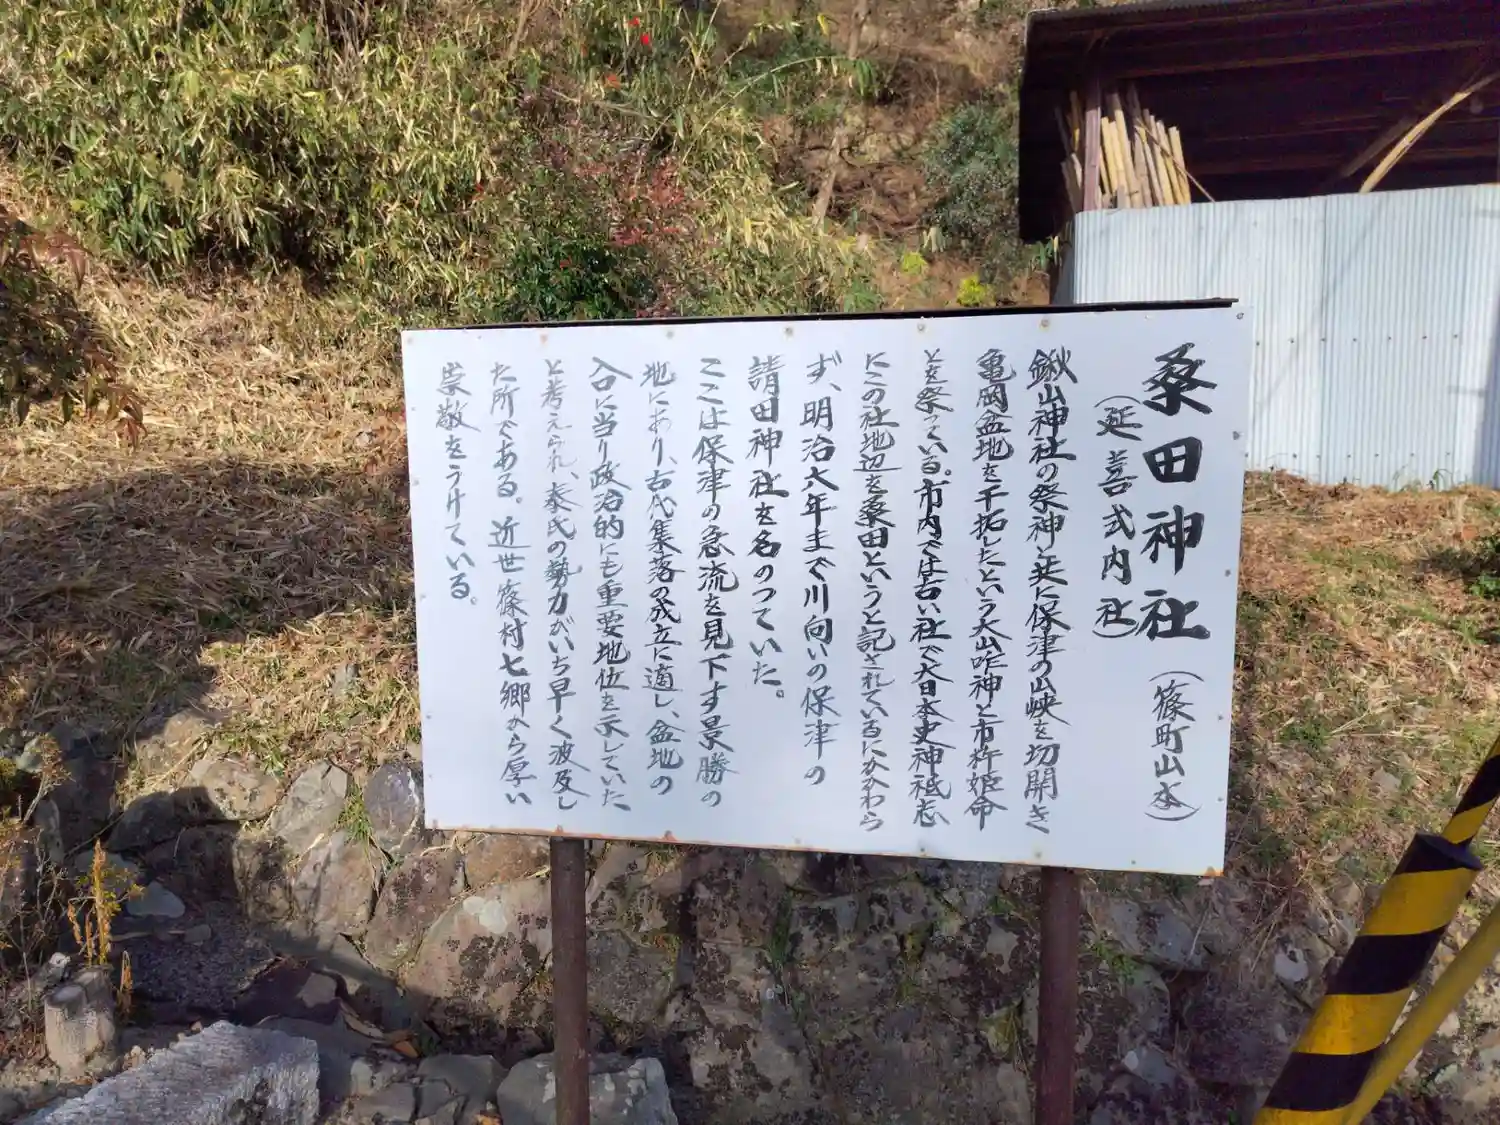 桑田神社(篠町山本)
(延喜式内社)
鍬山神社の祭神と共に保津の山峡を切開き
亀岡盆地を干拓したという大山咋神と市杵姫命
とを祭っている。市内では古い社で大日本史神祗志
にこの社地辺を桑田というと記されているにかかわら
ず、明治六年まで川向いの保津の
請田神社を名のっていた。
ここは保津の急流を見下す景勝の
地にあり、古代集落の成立に適し、盆地の
入口に当り政治的にも重要地位を示していた
と考えられ、秦氏の勢力がいち早く波及し
た所である。近世篠村七郷から厚い
崇敬をうけている。